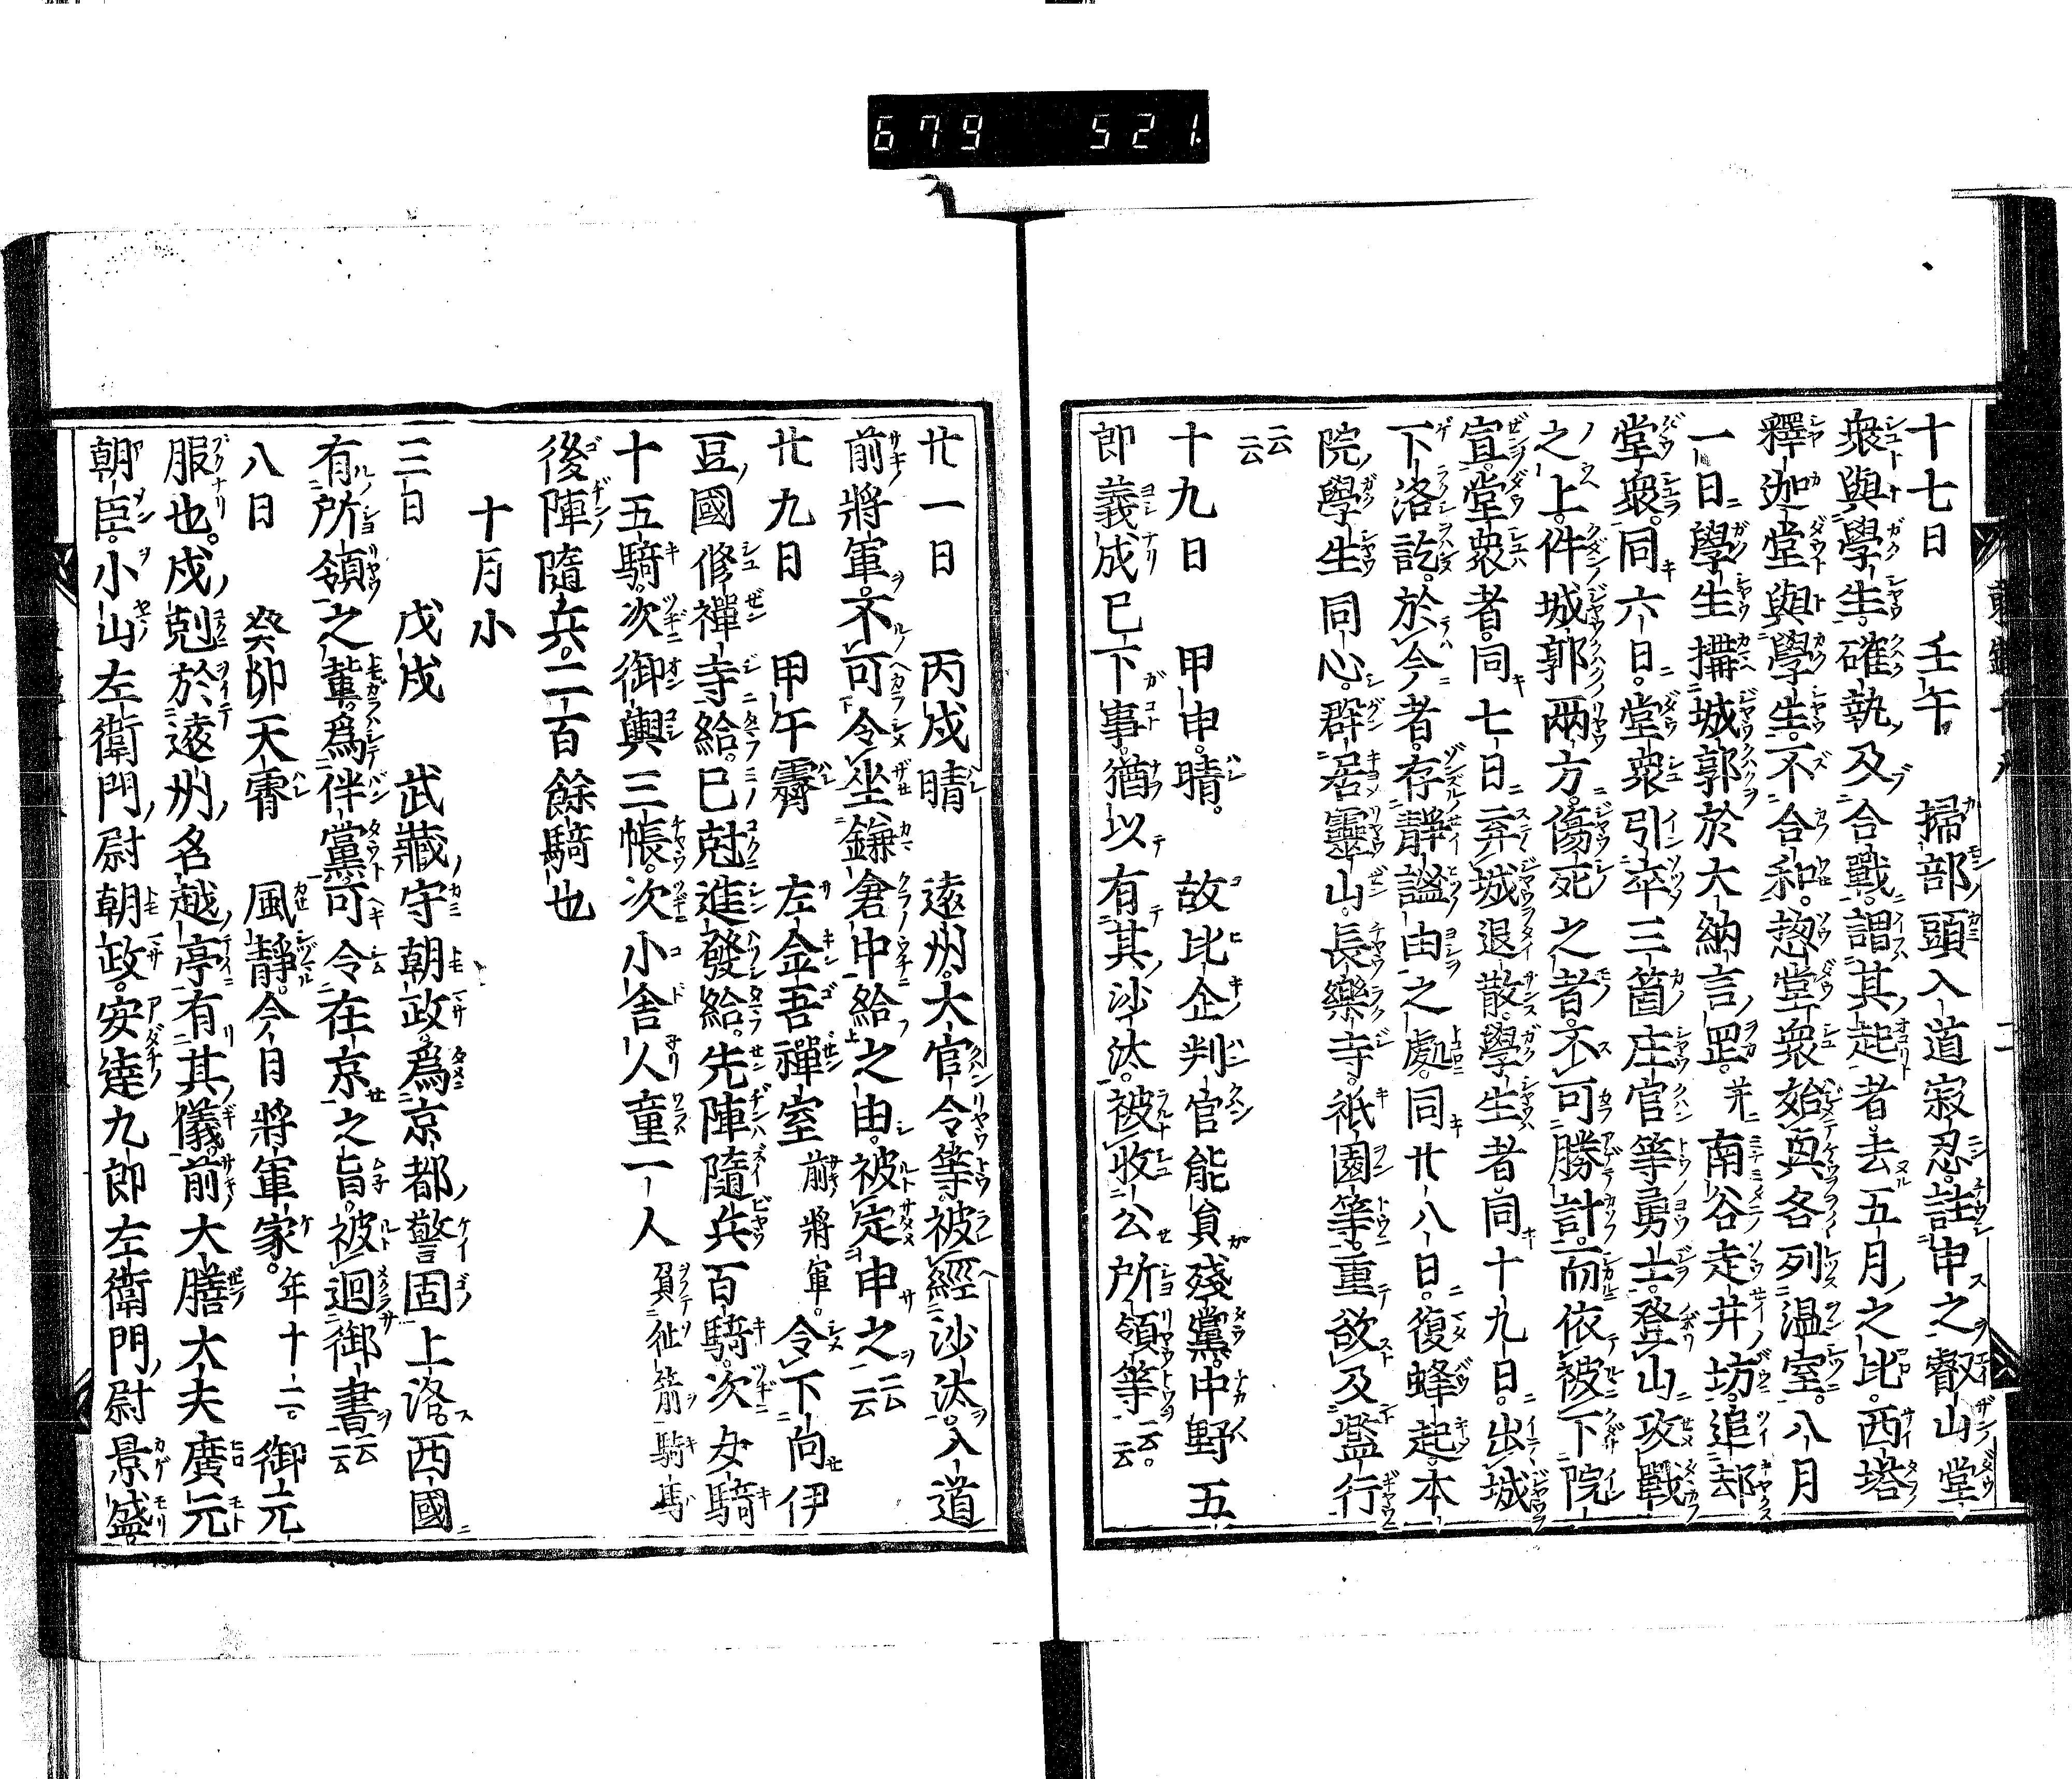 679 521
十七日 壬午 掃部頭入道寂忍註申之叡山堂
衆與學生確執及合戰謂其起者去五月之比西塔
釋迦堂與學生不合和惣堂衆始與各列温室八月
一日學生搆城郭於大納言罡并南谷走井坊追却
堂衆同六日堂衆引率三箇庄官等勇士登山攻戰
之上件城郭兩方傷死之者不可勝計而依被下院
宣堂衆者同七日弃城退散學生者同十九日出城
下洛訖於今者存靜謐由之處同廿八日復蜂起本
院學生同心群居靈山長樂寺祇園等重欲及濫行
云云
十九日 甲申晴 故比企判官能員殘黨中野五
郎義成已下事猶以有其沙汰被收公所領等云云
廿一日 丙戌晴 遠州大官令等被經沙汰入道
前將軍不可令坐鎌倉中給之由被定申之云云
廿九日 甲午霽 左金吾禪室前將軍令下向伊
豆國修禪寺給巳尅進發給先陣隨兵百騎次女騎
十五騎次御輿三帳次小舎人童一人負征箭騎馬
後陣隨兵二百餘騎也
十月小
三日 戊戌 武藏守朝政爲京都警固上洛西國
有所領之輩爲伴黨可令在京之旨被廻御書云云
八日 癸卯天霽 風靜今日將軍家年十二御元
服也戌尅於遠州名越亭有其儀前大膳大夫廣元
朝臣小山左衛門尉朝政安達九郎左衛門尉景盛